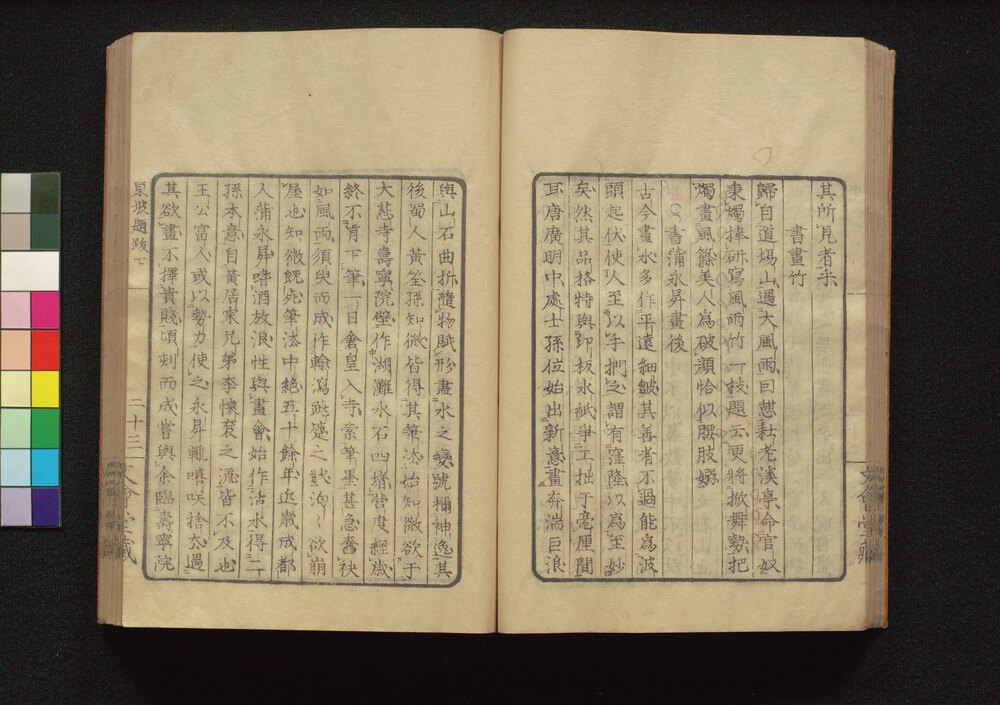 其所見者乎
書畫竹
歸自道場山遇大風雨囙憩耘老溪亭命官奴
秉燭捧硏寫風雨竹一枝題云更將掀舞勢把
燭畫風篠美人爲破顔恰似腰肢嫋
書蒲永昇畫後
古今畫水多作平遠細皺其善者不過能爲波
頭起伏使人至以手捫之謂有窪隆以爲至妙
矣然其品格特與印板水紙爭工拙于毫厘間
耳唐廣明中處士孫位始出新意畫奔湍巨浪
與山石曲折隨物賦形盡水之變號稱神逸其
後蜀人黃筌孫知微皆得其筆法始知微欲于
大慈寺壽寧院壁作湖灘水石四堵營度經歲
終不肯下筆一日倉皇入寺索筆墨甚急奮袂
如風雨須臾而成作輸瀉跳蹙之狀洶〻欲崩
屋也知微旣死筆法中絕五十餘年近歲成都
人蒲永昇嗜酒放浪性與畫會始作活水得二
孫本意自黃居寀兄弟李懷袞之流皆不及也
王公富人或以勢力使之永昇輒嘻咲捨去遇
其欲畫不擇貴賤頃刻而成嘗與余臨壽寧院
東坡題跋下
二十三
文會堂藏